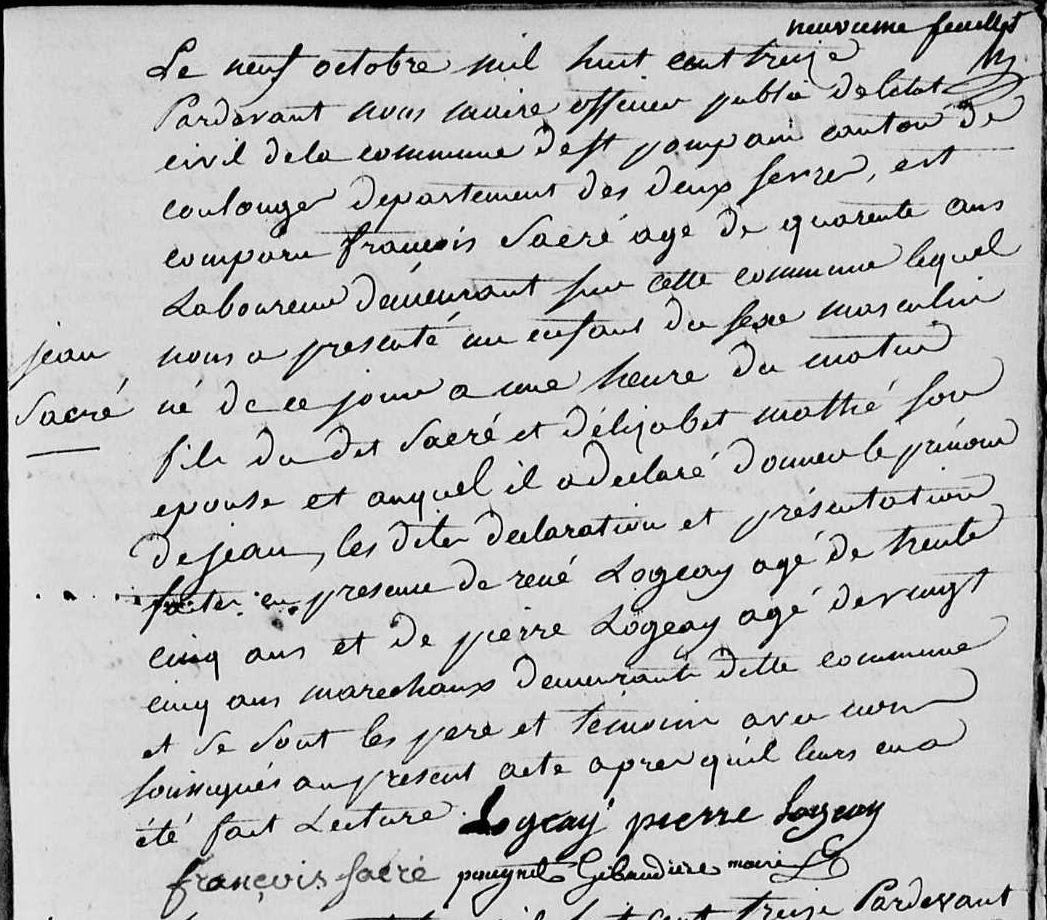 neuvieme feuillet
Le neuf octobre mil huit cent treize
Pardevant nous maire officier public deletat
civil dela commune de st pompain canton de
coulonge departement des deux sevres, est
comparu françois Sacré agé de quarente ans
Laboureur demeurant sur cette commune lequel
jean
nous a presenté un enfant du sexe masculin
Sacré
né de ce jour a une heure du matin
fils du dit Sacré et délizabet mathé son
epouse et auquel il a declaré donner le prénom
de jean, les dites declaration et présentation
faites en presence de rené Logeay agé de trente
cinq ans et de pierre Logeay agé de vingt
cinq ans marechaux demeurants ditte commune
et se sont les pere et témoins avec nous
soussignés au present acte apres qu'il leurs en a
été fait Lecture
Logeay pierre Logeay
françois sacré Gibaudiere maire
treize Pardevant